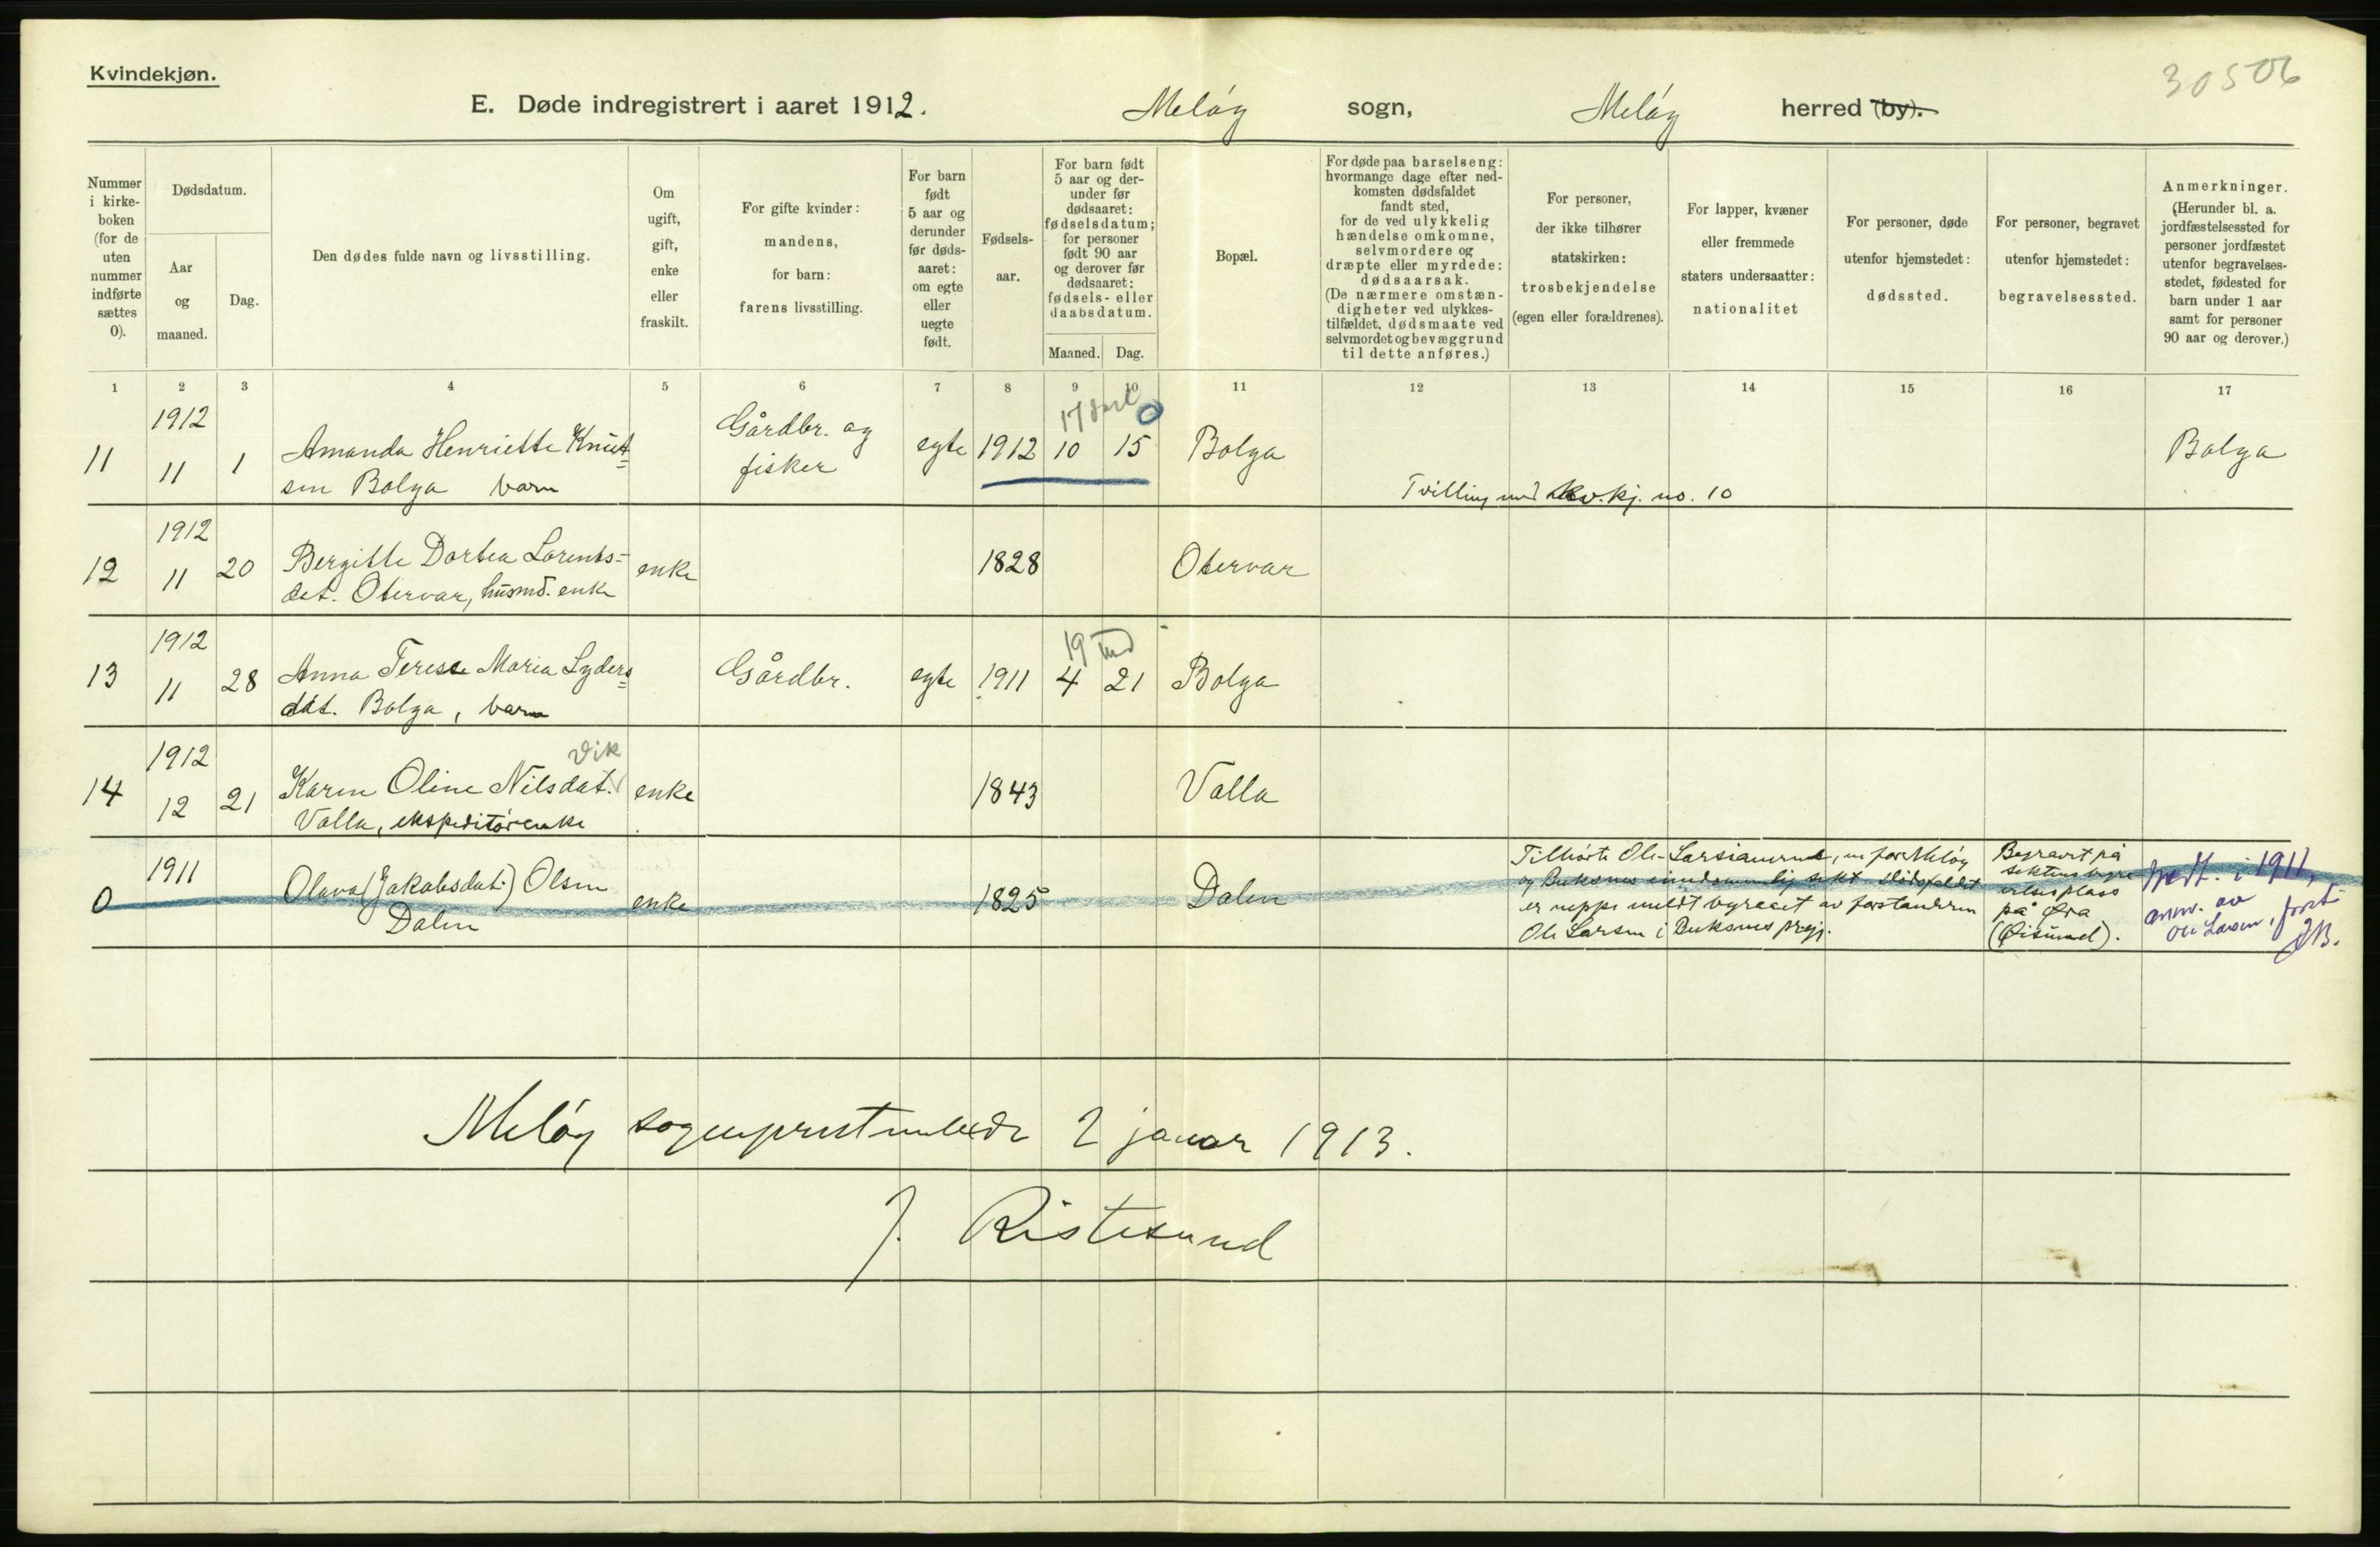 Kvindekjøn.
30506
E. Døde indregistrert i aaret 1912. Meløy sogn, Meløy herred (by).
Nummer i kirkeboken (for de uten nummer indførte sættes 0).
Dødsdatum.
Aar og maaned.
Dag.
Den dødes fulde navn og livsstilling.
Om ugift, gift, enke eller fraskilt.
For gifte kvinder: mandens, for barn: farens livsstilling.
For barn født 5 aar og derunder før dødsaaret: om egte eller uegte født.
Fødselsaar.
For barn født 5 aar og derunder før dødsaaret: fødselsdatum; for personer født 90 aar og derover før dødsaaret: fødsels- eller daabsdatum.
Maaned. Dag.
Bopæl.
For døde paa barselseng: hvormange dage efter nedkomsten dødsfaldet fandt sted, for de ved ulykkelig hændelse omkomne, selvmordere og dræpte eller myrdede: dødsaarsak. (De nærmere omstændigheter ved ulykkestilfældet, dødsmaate ved selvmordet og bevæggrund til dette anføres.)
For personer, der ikke tilhører statskirken: trosbekjendelse (egen eller forældrenes).
For lapper, kvæner eller fremmede staters undersaatter: nationalitet
For personer, døde utenfor hjemstedet: dødssted.
For personer, begravet utenfor hjemstedet: begravelsessted.
Anmerkninger. (Herunder bl. a. jordfæstelsessted for personer jordfæstet utenfor begravelsesstedet, fødested for barn under 1 aar samt for personer 90 aar og derover.)
1 2 3 4 5 6 7 8 9 10 11 12 13 14 15 16 17
1912 Gårdbr. og 17 0
11 11 1 Amanda Henriette Knut= fisker egte 1912 10 15 Bolga Bolga
sen Bolga barn Tvilling med kv.kj. no. 10
1912
12 11 20 Bergitte Dortea Lorents= enke 1828 Otervær
dat. Otervær, husmd. enke
1912 19 md
13 11 28 Anna Terese Maria Lyders= Gårdbr. egte 1911 4 21 Bolga
dat. Bolga, barn
1912 Vik
14 12 21 Karen Oline Nilsdat. enke 1843 Valla
Valla, ekspeditørenke
1911
0 Olava (Jakobsdat.) Olsen enke 1825 Dalen
Dalen
Tilhørte Ole-Larsianerne, en for Meløy
og Buksnes eiendommelig sekt. Dødsfaldet
er neppe meldt byraaet av forstanderen
Ole Larsen i Buksnes prgj.
Begravet på
sektens begra
velsesplass
på Øra
(Øisund).
i 1911,
anm. av
Ole Larsen,
JB.
Meløy sogneprestembede 2 januar 1913.
J. Ristesund